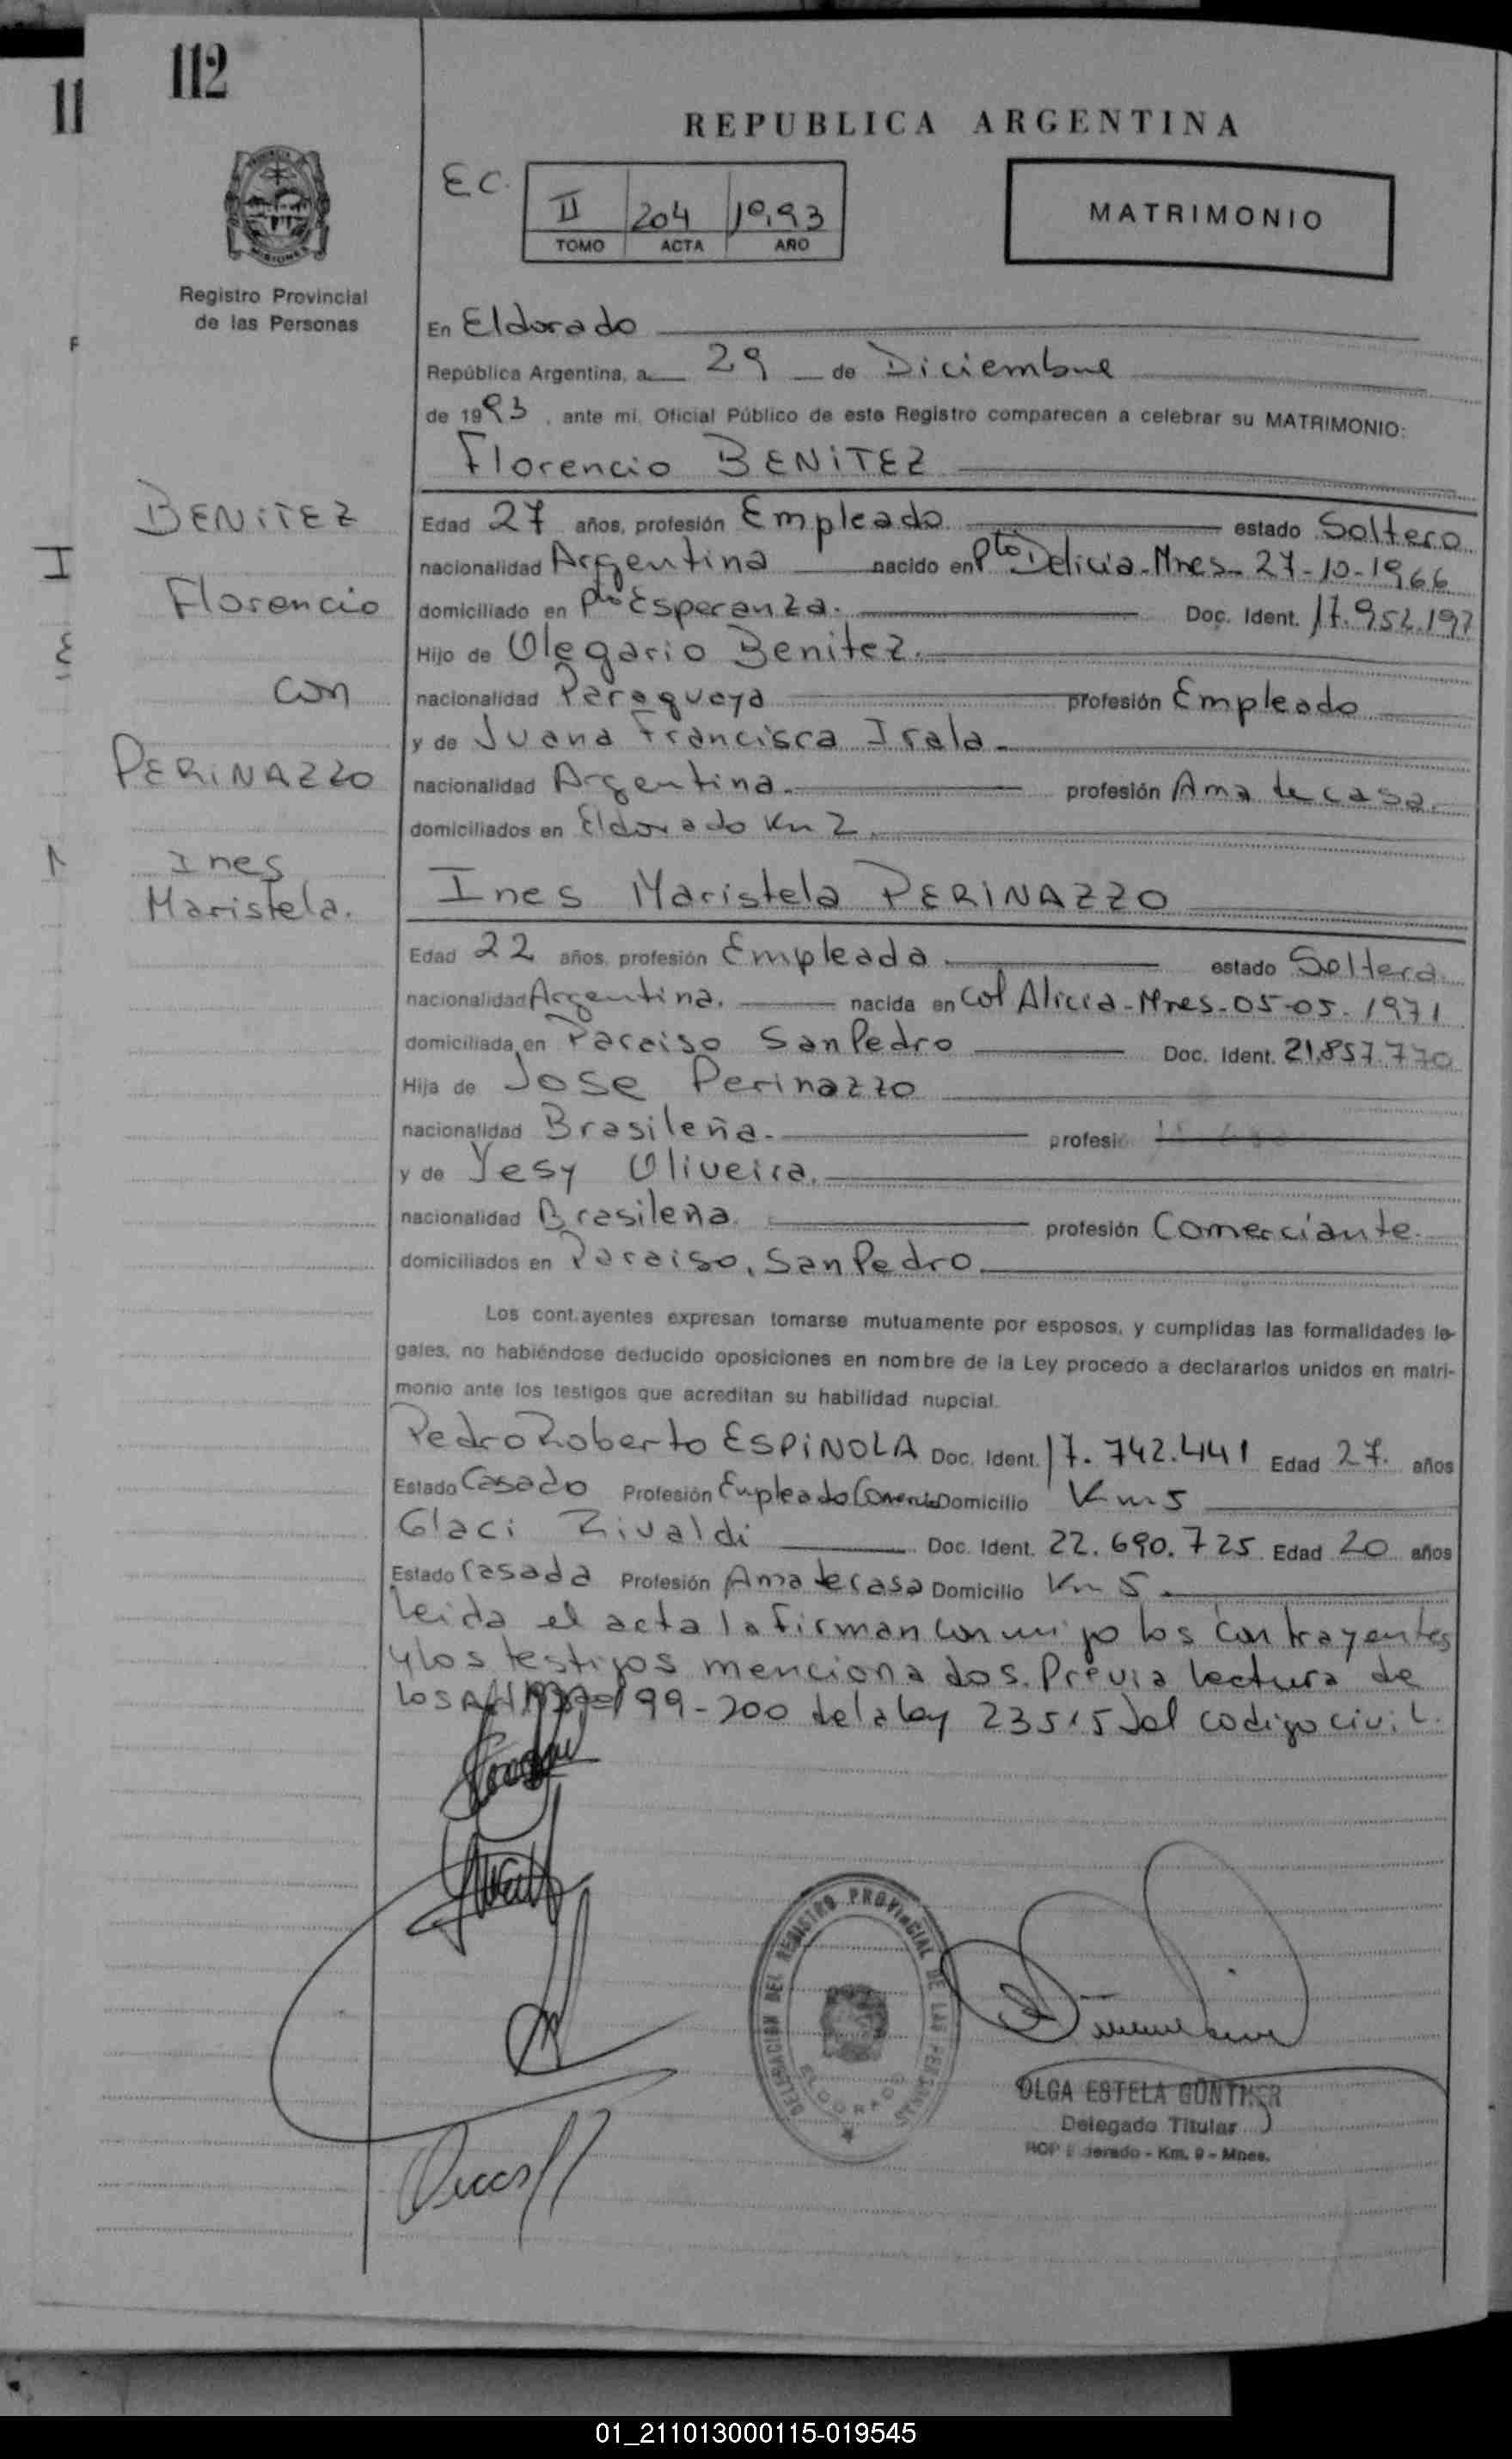 112
11
REPUBLICA ARGENTINA
EC.
II 204 1993
TOMO ACTA AÑO
MATRIMONIO
Registro Provincial
de las Personas
En Eldorado
República Argentina, a 29 de Diciembre
de 1993, ante mi, Oficial Público de este Registro comparecen a celebrar su MATRIMONIO:
Florencio BENITEZ
BENITEZ
Florencio
con
PERINAZZO
Ines
Maristela.
Edad 27 años, profesión Empleado estado Soltero
nacionalidad Argentina nacido en Pto Delicia-Mnes-27-10-1966
domiciliado en Pto Esperanza. Doc. Ident. 17.952.197
Hijo de Olegario Benitez.
nacionalidad Paraguaya profesión Empleado
y de Juana Francisca Irala.
nacionalidad Argentina. profesión Ama de casa.
domiciliados en Eldorado Km 2.
Ines Maristela PERINAZZO
Edad 22 años, profesión Empleada. estado Soltera
nacionalidad Argentina. nacida en Col Alicia-Mnes-05-05-1971
domiciliada en Paraiso San Pedro Doc. Ident. 21.857.770
Hija de Jose Perinazzo
nacionalidad Brasileña. profesi
y de Yesy Oliveira.
nacionalidad Brasileña. profesión Comerciante.
domiciliados en Paraiso, San Pedro.
Los cont.ayentes expresan tomarse mutuamente por esposos, y cumplidas las formalidades le-
gales, no habiéndose deducido oposiciones en nombre de la Ley procedo a declararlos unidos en matri-
monio ante los testigos que acreditan su habilidad nupcial.
Pedro Roberto ESPINOLA Doc. Ident. 17.742.441 Edad 27. años
Estado Casado Profesión Empleado Comercio Domicilio Km 5
Glaci Rivaldi Doc. Ident. 22.690.725 Edad 20 años
Estado Casada Profesión Ama de casa Domicilio Km 5.
Leida el acta la firman con migo los contrayentes
y los testigos mencionados. Previa lectura de
los 199-200 de la ley 23515 del codigo civil.
DELEGACION DEL REGISTRO PROVINCIAL DE LAS PERSONAS
ELDORADO
OLGA ESTELA GÜNTHER
Delegado Titular
Km. 9 - Mnes.
01_211013000115-019545